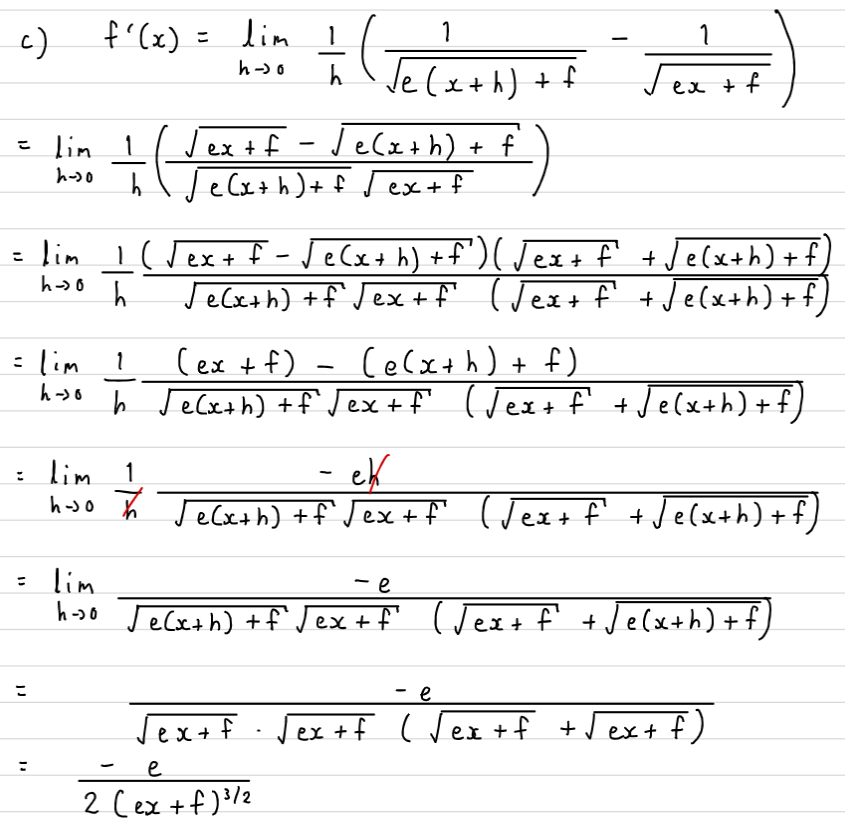 c) f'(x) = lim h→0 1/h ( 1/√(e(x+h)+f) - 1/√(ex+f) )
= lim h→0 1/h ( (√(ex+f) - √(e(x+h)+f)) / (√(e(x+h)+f) √(ex+f)) )
= lim h→0 1/h (√(ex+f) - √(e(x+h)+f))(√(ex+f) + √(e(x+h)+f)) / (√(e(x+h)+f) √(ex+f) (√(ex+f) + √(e(x+h)+f)))
= lim h→0 1/h ((ex+f) - (e(x+h)+f)) / (√(e(x+h)+f) √(ex+f) (√(ex+f) + √(e(x+h)+f)))
= lim h→0 1/h (-eh) / (√(e(x+h)+f) √(ex+f) (√(ex+f) + √(e(x+h)+f)))
= lim h→0 -e / (√(e(x+h)+f) √(ex+f) (√(ex+f) + √(e(x+h)+f)))
= -e / (√(ex+f) · √(ex+f) (√(ex+f) + √(ex+f)))
= -e / (2(ex+f)^(3/2))